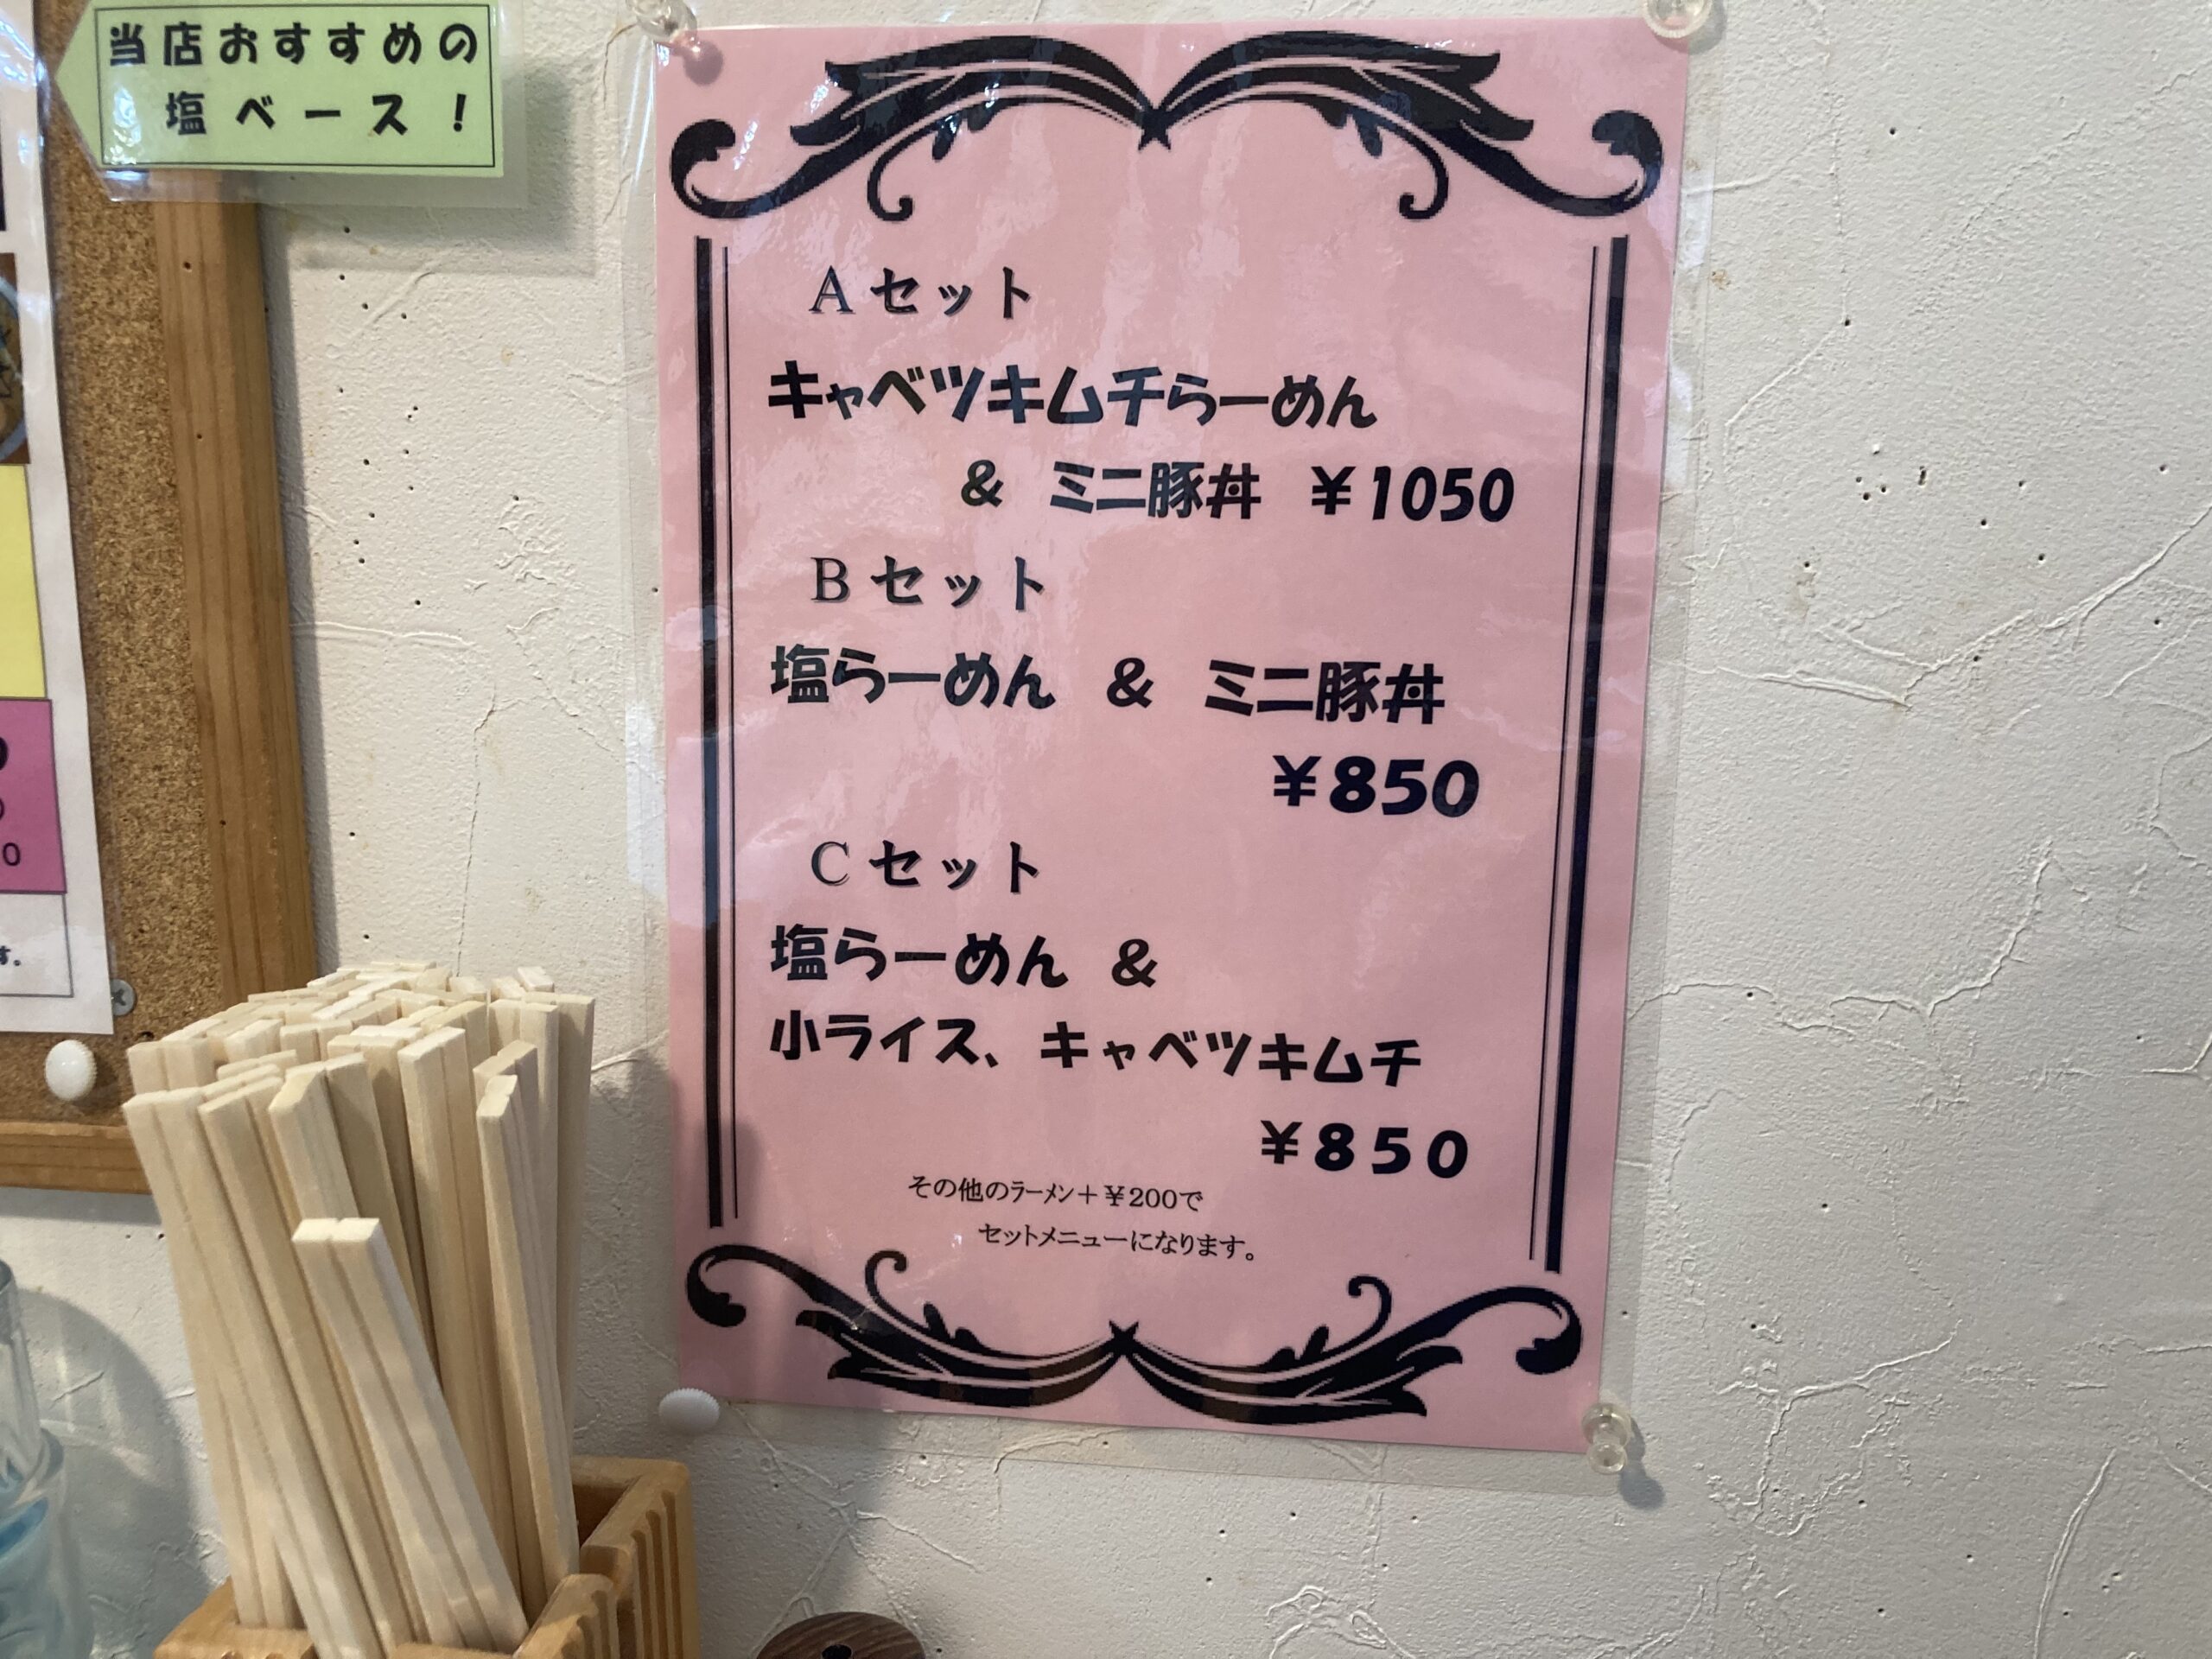 当店おすすめの
塩ベース！
Aセット
キャベツキムチらーめん
& ミニ豚丼 ￥1050
Bセット
塩らーめん & ミニ豚丼
￥850
Cセット
塩らーめん &
小ライス、キャベツキムチ
￥850
その他のラーメン＋￥200で
セットメニューになります。
す。